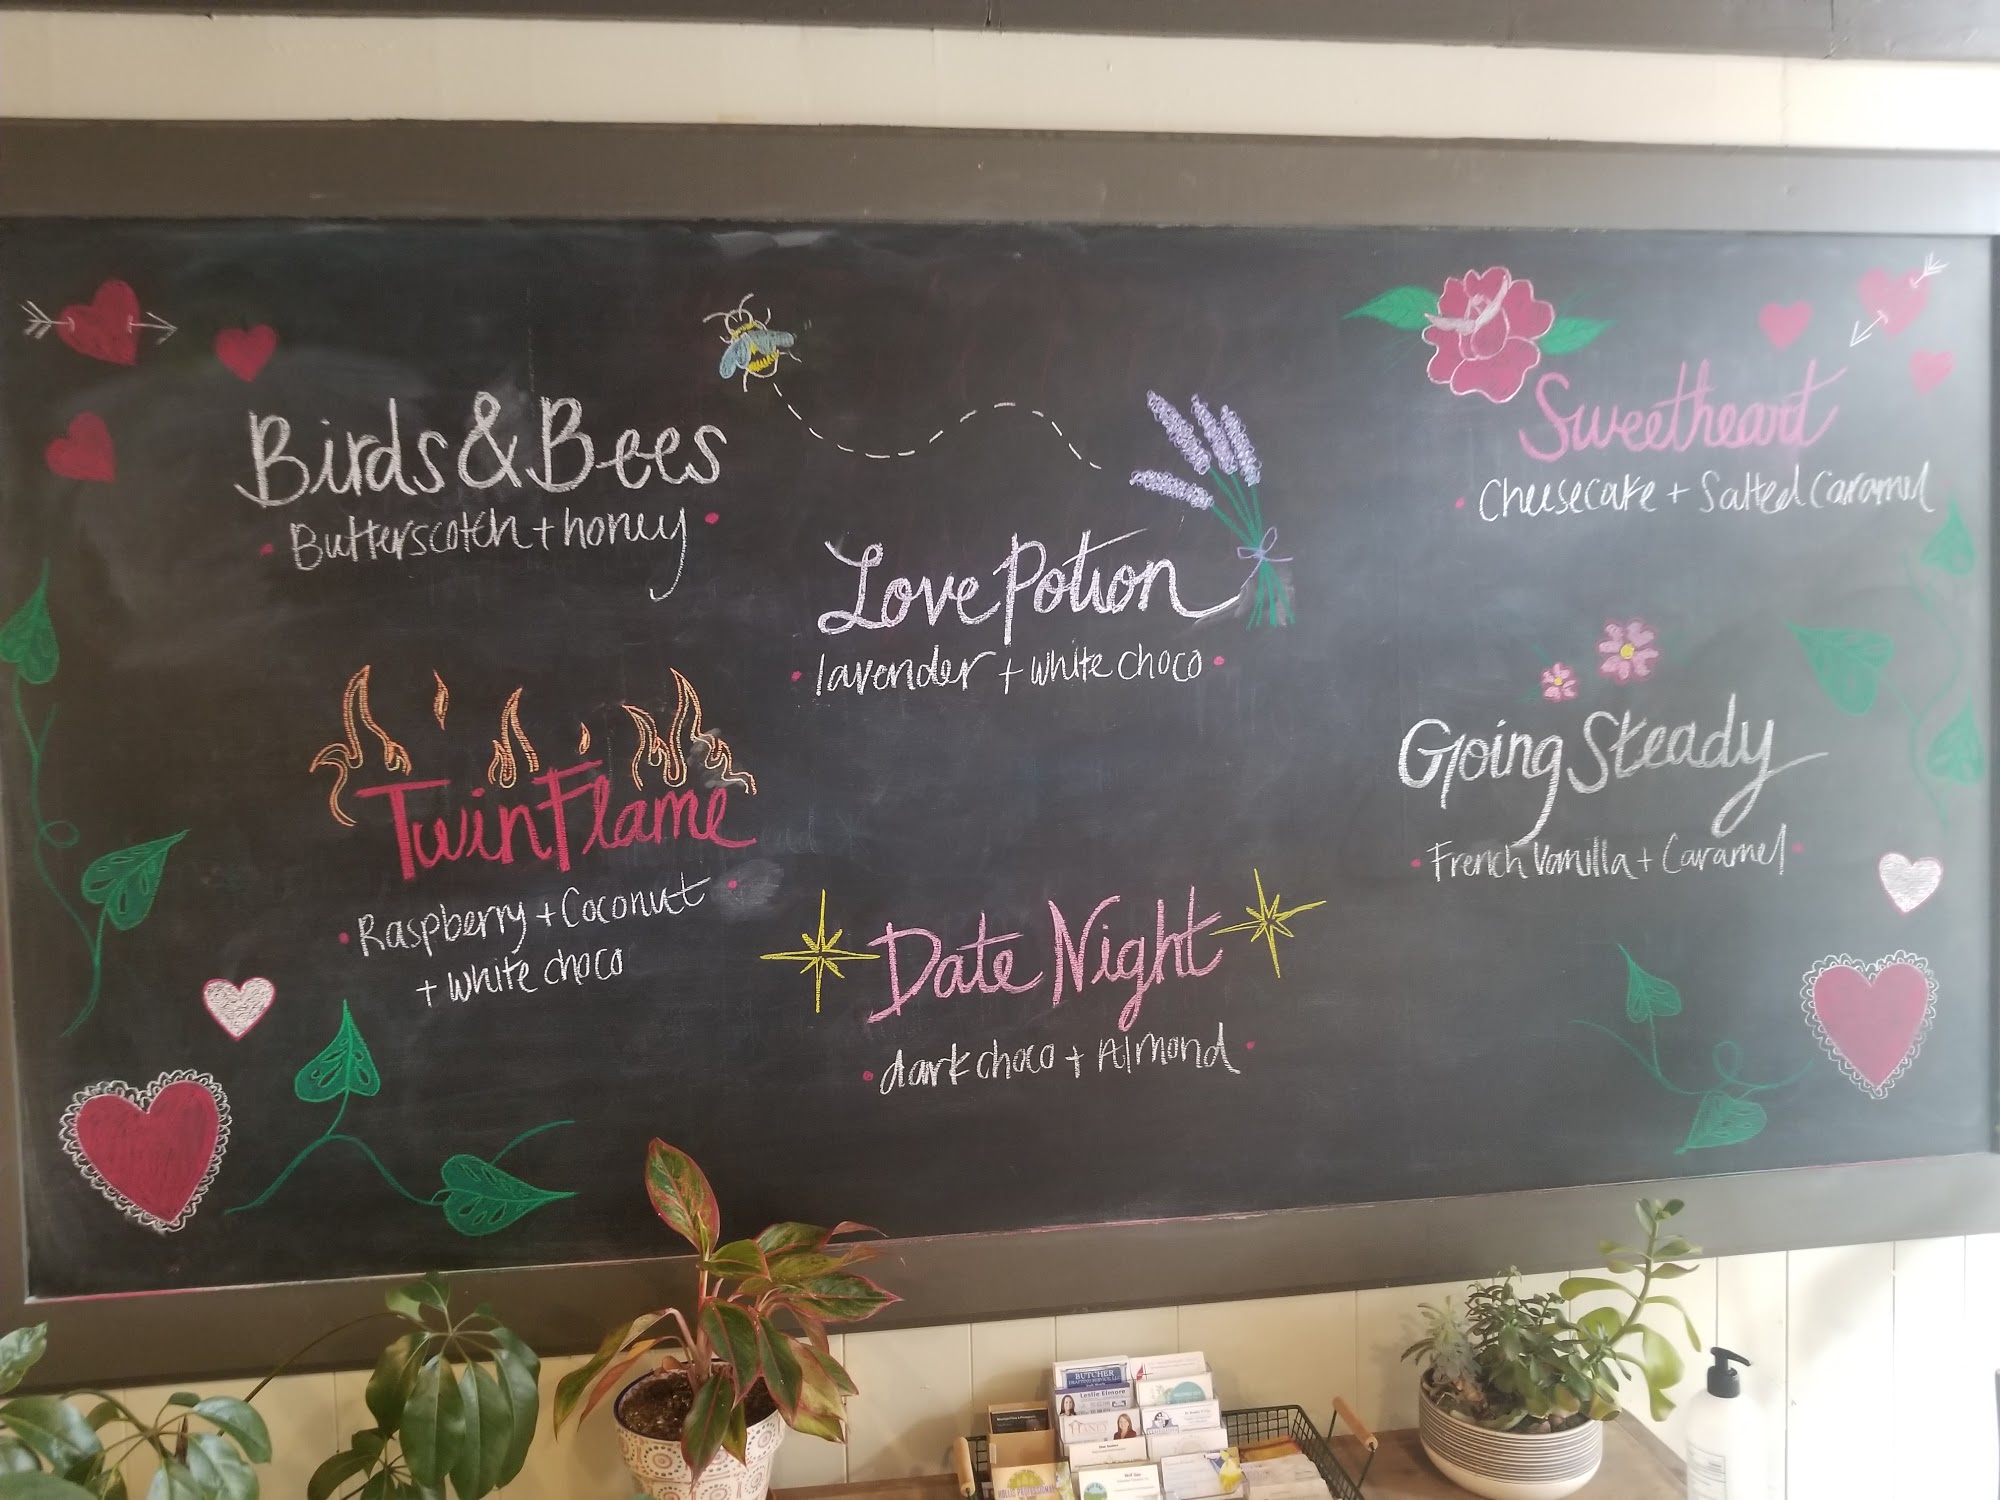 Birds & Bees
Butterscotch + honey
Love Potion
lavender + white choco
Sweetheart
Cheesecake + Salted Caramel
Twin Flame
Raspberry + Coconut
+ white choco
Going Steady
French Vanilla + Caramel
Date Night
dark choco + Almond
BUTCHER
Leslie Elmore